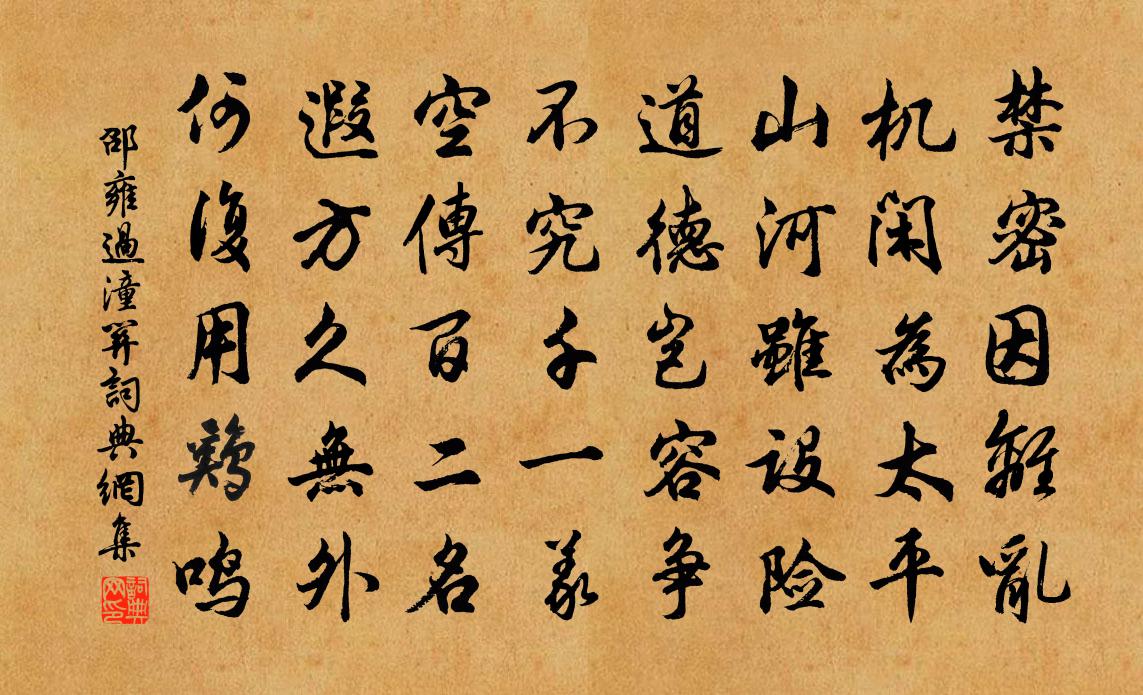 禁密因離亂
机閑為太平
山河雖設险
道德豈容争
不究千一義
空傳百二名
遐方久無外
何復用鷄鸣
邵雍過潼關詞典網集
詞典网印